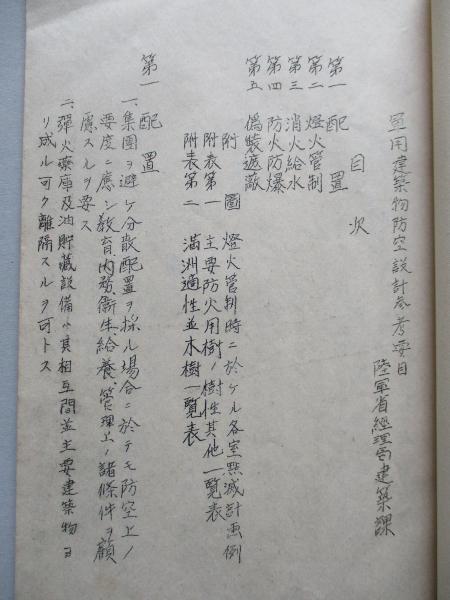 軍用建築物防空設計参考要目
陸軍省経理局建築課
目次
第一 配置
第二 燈火管制
第三 消火給水
第四 防火防爆
第五 偽装遮蔽
附圖 燈火管制時ニ於ケル各室点滅計画例
附表第一 主要防火用樹ノ樹性其他一覧表
附表第二 満洲適性並木樹一覧表
第一 配置
一、集團ヲ避ケ分散配置ヲ採ル場合ニ於テモ防空上ノ
要度ニ應シ教育、内務、衛生、給養、管理上ノ諸條件ヲ顧
慮スルヲ要ス
二、彈火藥庫及油貯蔵設備ハ其相互間並主要建築物ヨ
リ成ル可ク離隔スルヲ可トス